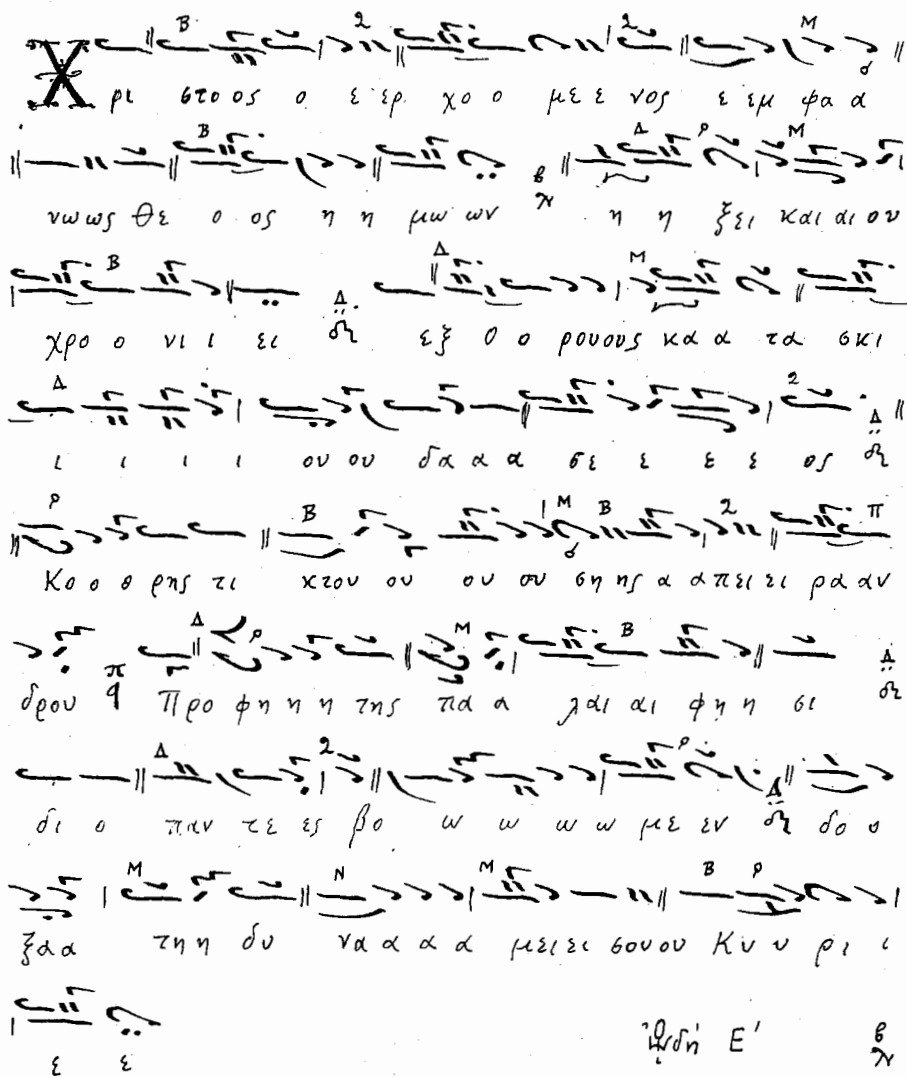 Χ ρι στο ος ο ε ερ χο ο με ε νος ε εμ φα α
νω ως Θε ο ος η η μω ων η η ξει και αι ου
χρο ο νι ι ει εξ ο ο ρους ους κα α τα σκι
ι ι ι ι ου ου δα α α σε ε ε ε ος
Κο ο ο ρης τι κτου ου ου συ ση ης α α πει ει ρα αν
δρου Προ φη η η της πα α λαι αι φη η σι
δι ο παν τε ες βο ω ω ω ω με εν δο ο
ξα α τη η δυ να α α α μει ει σου ου Κυ υ ρι ι
ε ε ᾨδή Ε'